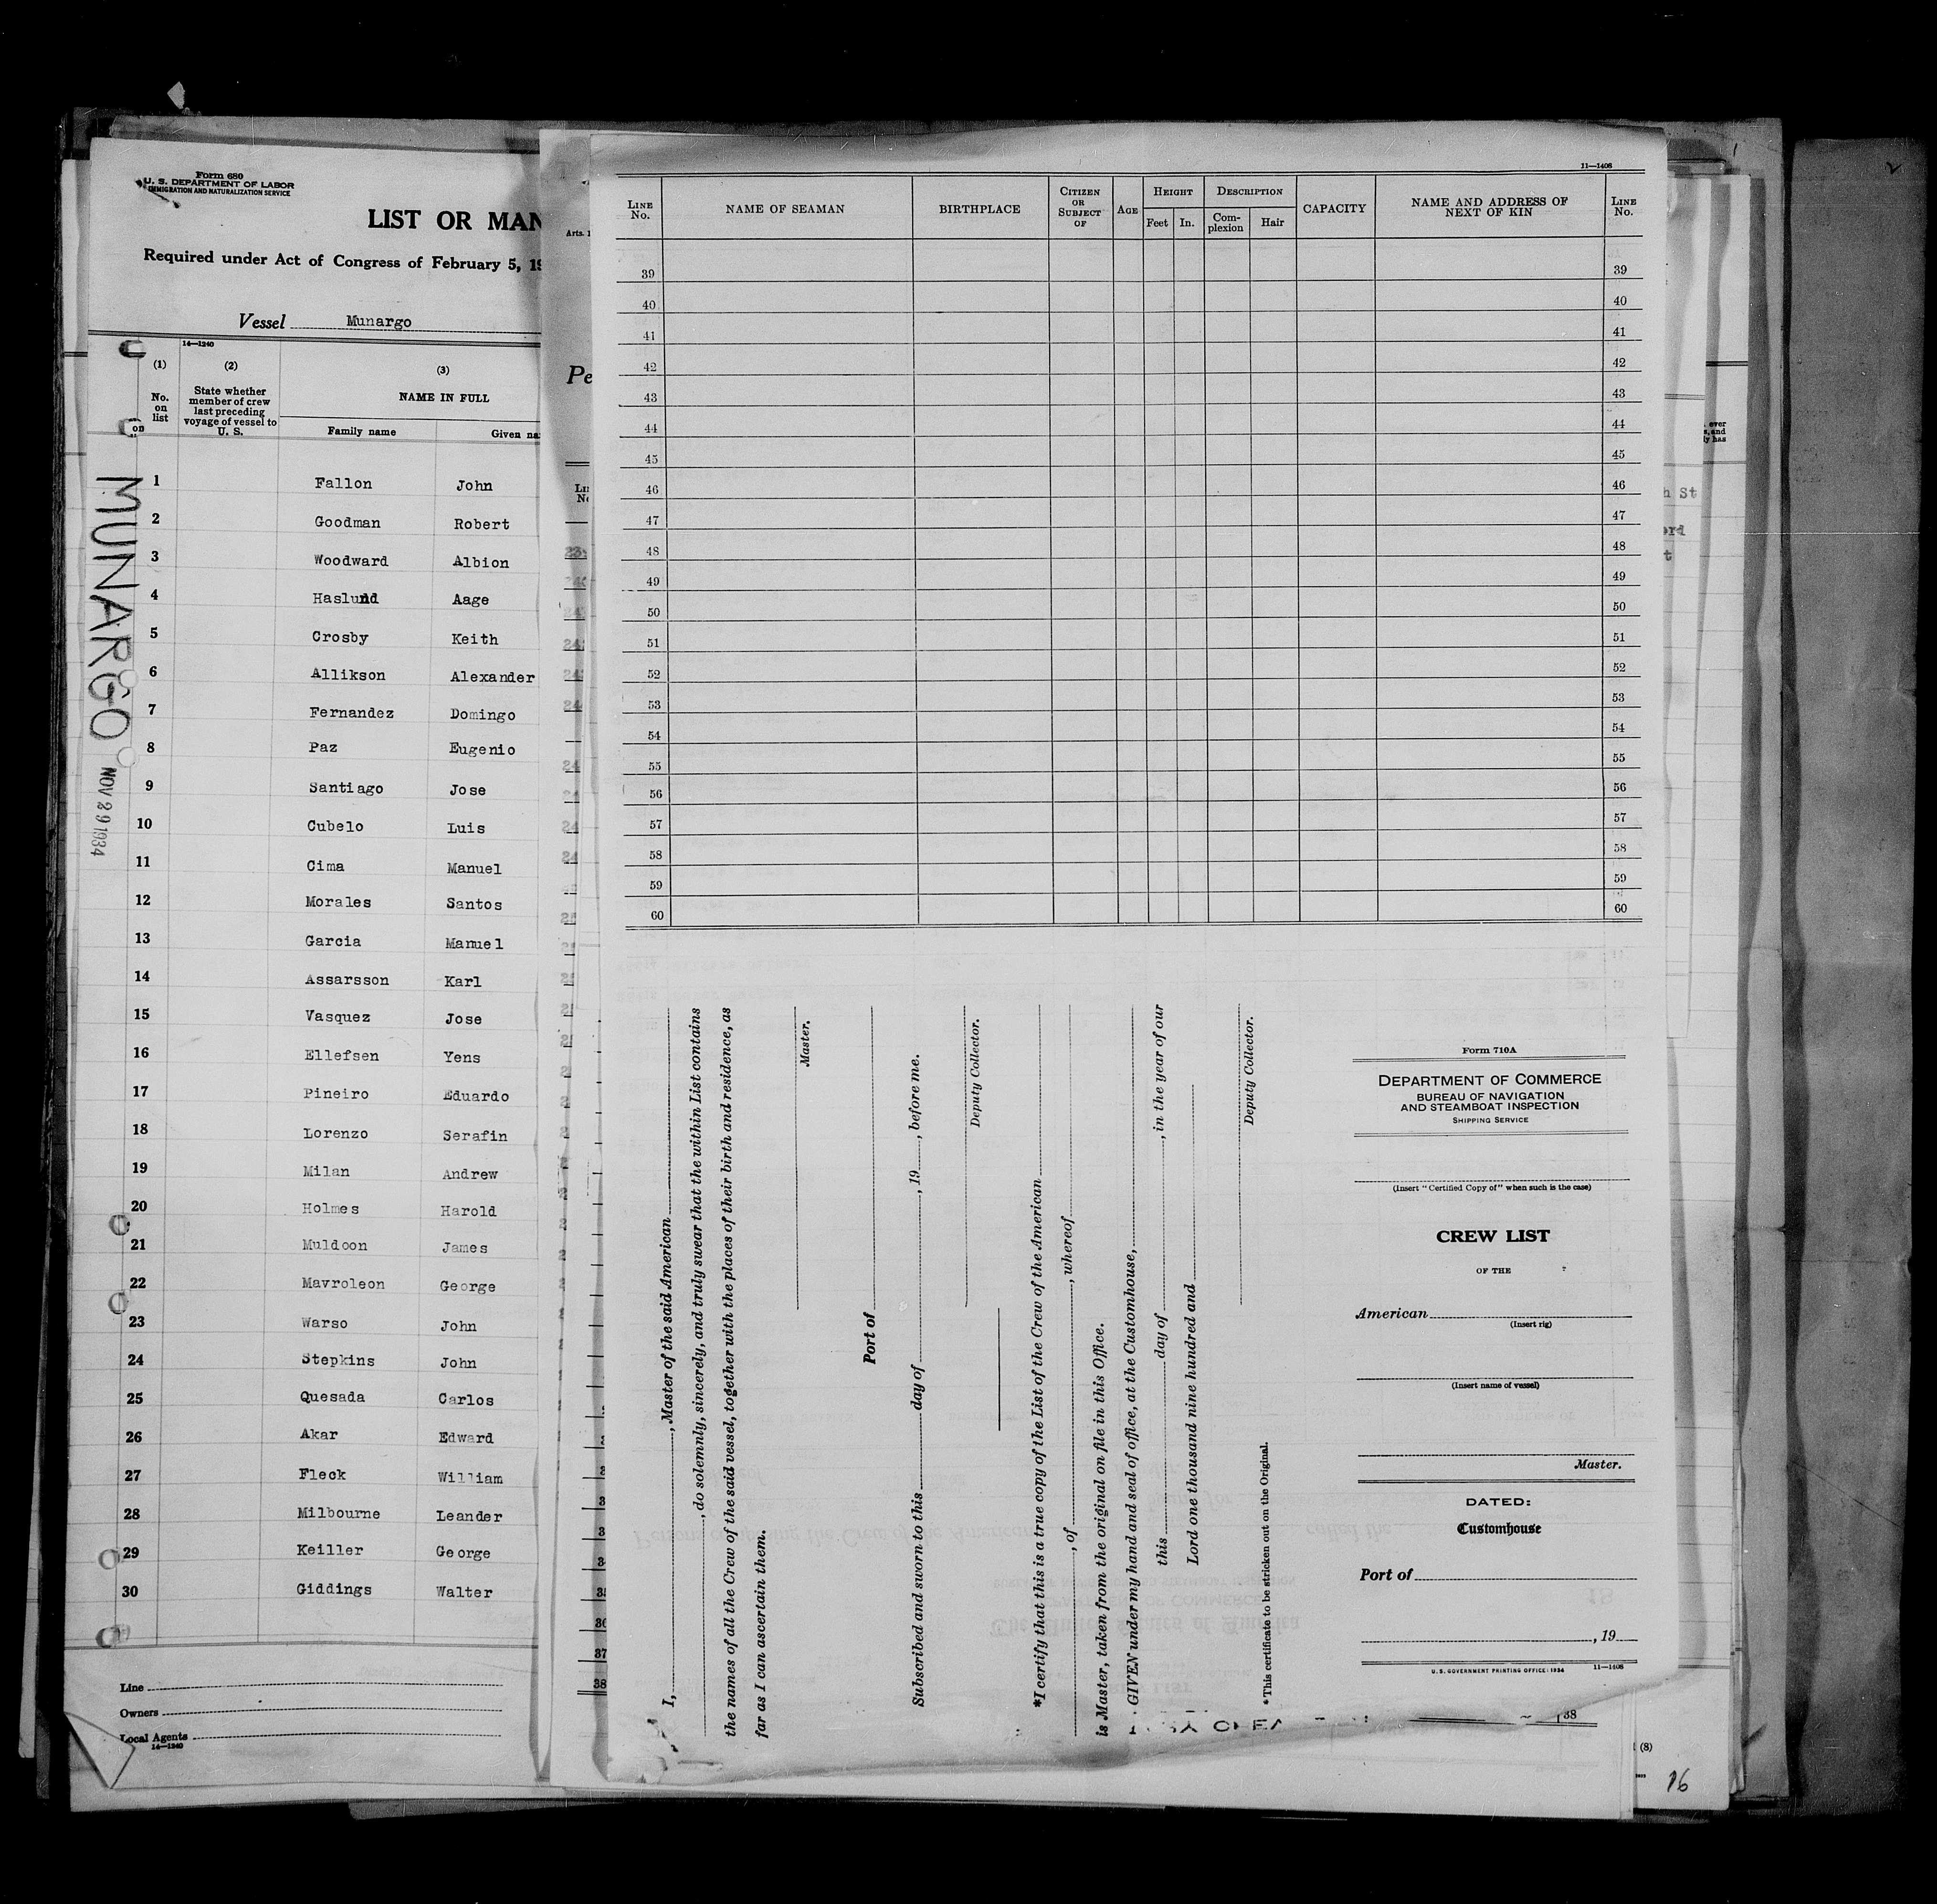 Form 680
U. S. DEPARTMENT OF LABOR
IMMIGRATION AND NATURALIZATION SERVICE
LIST OR MAN
Required under Act of Congress of February 5, 19
Vessel Munargo
14—1240
(1) (2) (3)
No. on list
State whether member of crew last preceding voyage of vessel to U. S.
NAME IN FULL
Family name Given na
on
MUNARGO
NOV 29 1934
1 Fallon John
2 Goodman Robert
3 Woodward Albion
4 Haslund Aage
5 Crosby Keith
6 Allikson Alexander
7 Fernandez Domingo
8 Paz Eugenio
9 Santiago Jose
10 Cubelo Luis
11 Cima Manuel
12 Morales Santos
13 Garcia Manuel
14 Assarsson Karl
15 Vasquez Jose
16 Ellefsen Yens
17 Pineiro Eduardo
18 Lorenzo Serafin
19 Milan Andrew
20 Holmes Harold
21 Muldoon James
22 Mavroleon George
23 Warso John
24 Stepkins John
25 Quesada Carlos
26 Akar Edward
27 Fleck William
28 Milbourne Leander
29 Keiller George
30 Giddings Walter
Line
Owners
Local Agents
14—1240
Arts. 1
Pe
36
37
38
11—1408
LINE No.
NAME OF SEAMAN
BIRTHPLACE
CITIZEN OR SUBJECT OF
AGE
HEIGHT
Feet In.
DESCRIPTION
Complexion Hair
CAPACITY
NAME AND ADDRESS OF NEXT OF KIN
LINE No.
39 39
40 40
41 41
42 42
43 43
44 44
45 45
46 46
47 47
48 48
49 49
50 50
51 51
52 52
53 53
54 54
55 55
56 56
57 57
58 58
59 59
60 60
I, , Master of the said American
, do solemnly, sincerely, and truly swear that the within List contains
the names of all the Crew of the said vessel, together with the places of their birth and residence, as
far as I can ascertain them.
Master.
Port of
Subscribed and sworn to this day of , 19 , before me.
Deputy Collector.
*I certify that this is a true copy of the List of the Crew of the American
, of , whereof
is Master, taken from the original on file in this Office.
GIVEN under my hand and seal of office, at the Customhouse,
this day of , in the year of our
Lord one thousand nine hundred and
Deputy Collector.
*This certificate to be stricken out on the Original.
Form 710A
DEPARTMENT OF COMMERCE
BUREAU OF NAVIGATION
AND STEAMBOAT INSPECTION
SHIPPING SERVICE
(Insert "Certified Copy of" when such is the case)
CREW LIST
OF THE
American
(Insert rig)
(Insert name of vessel)
Master.
DATED:
Customhouse
Port of
, 19
U. S. GOVERNMENT PRINTING OFFICE: 1934 11—1408
38
ever
s, and
ly has
h St
(8)
16